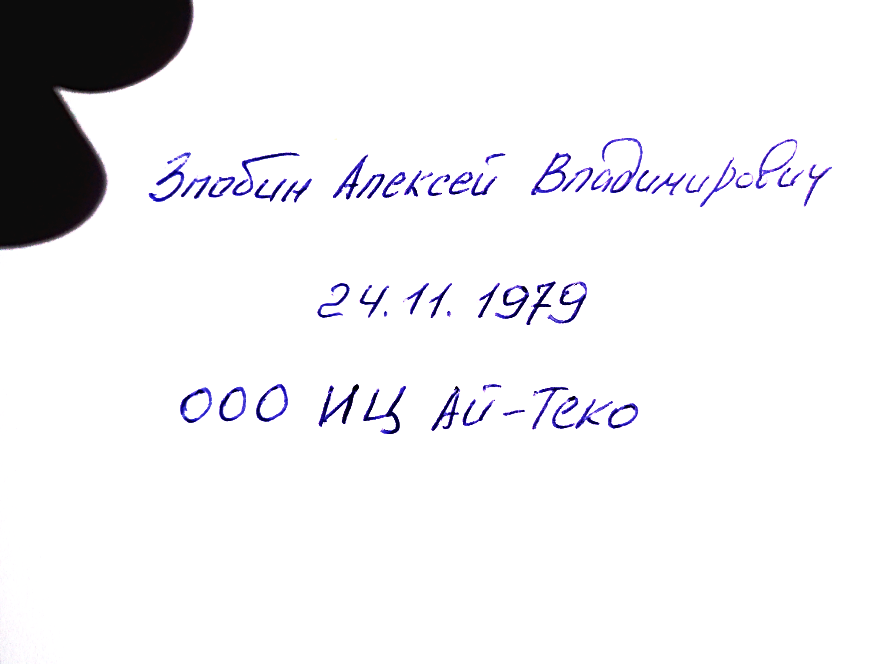 Злобин Алексей Владимирович
24.11.1979
ООО ИЦ Ай-Теко